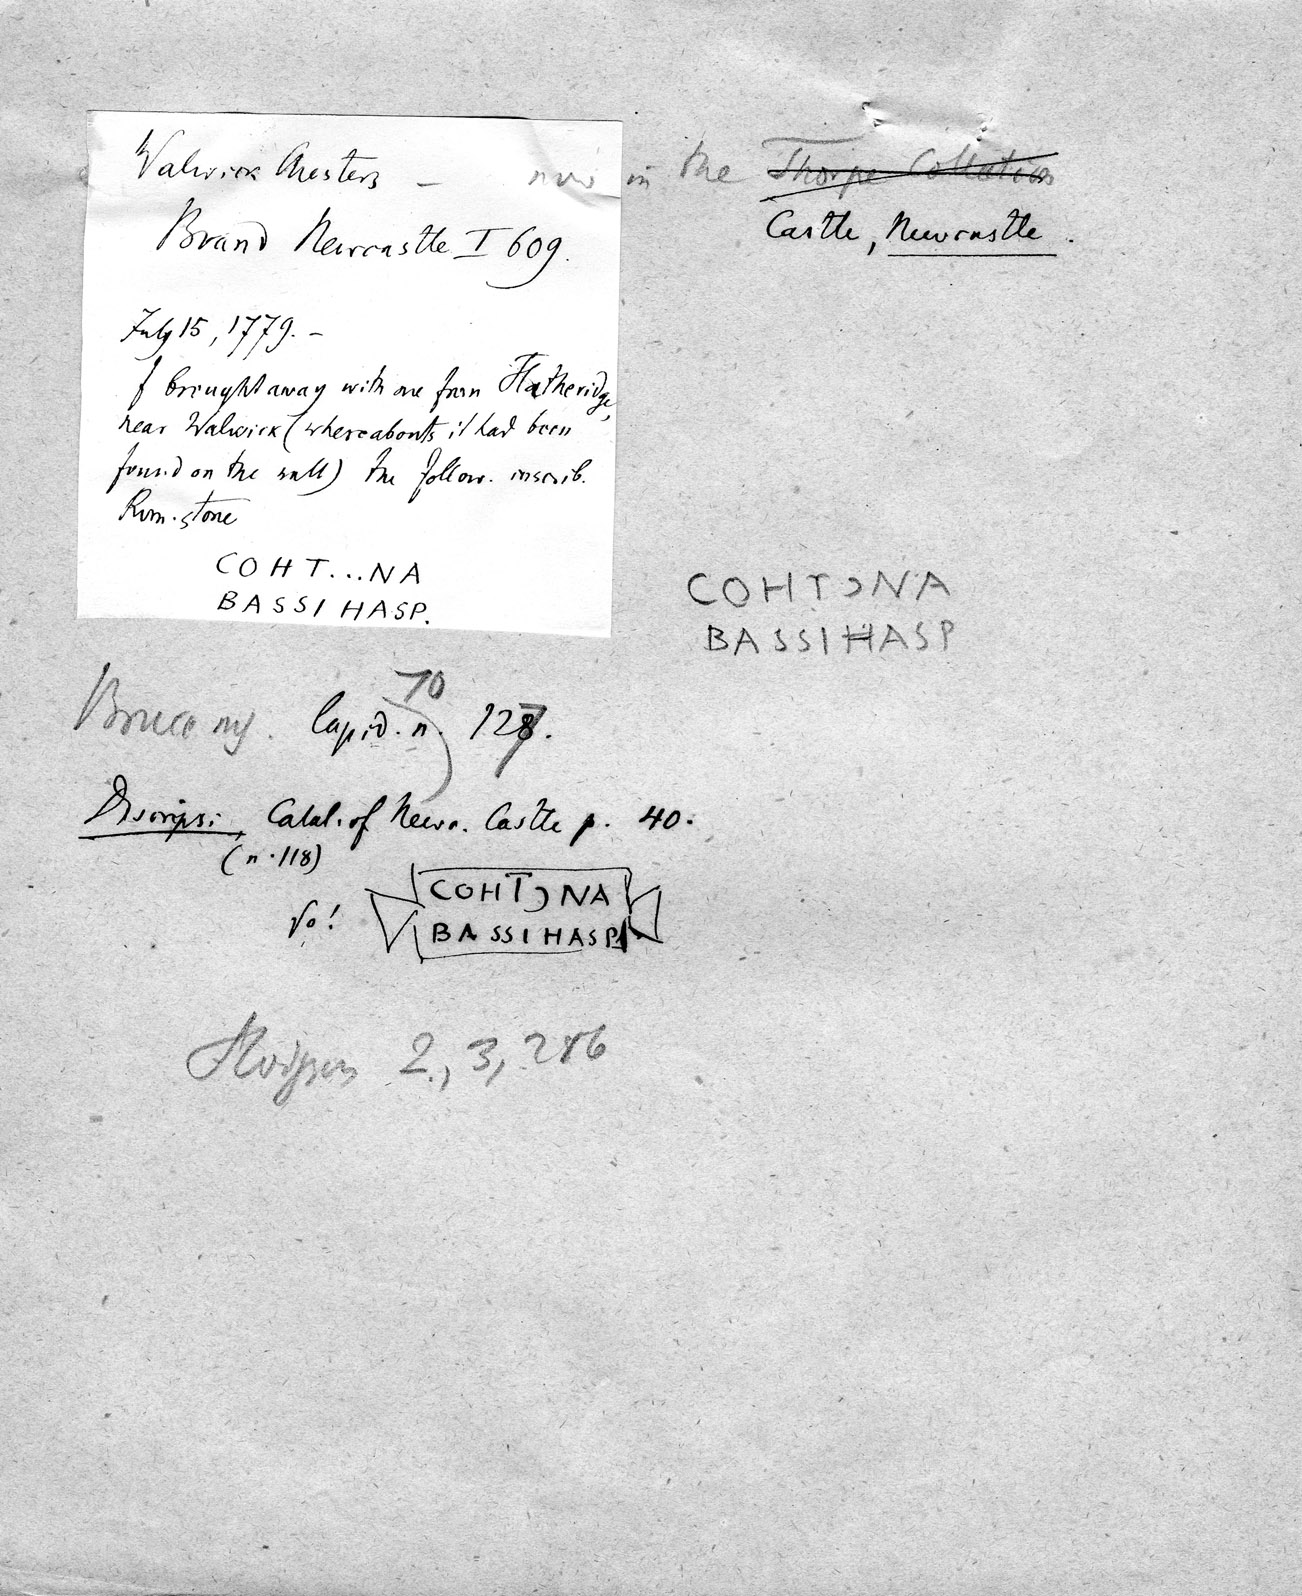 Walwick Chesters – now in the Thorpe Collection
Castle, Newcastle.
Brand Newcastle I 609.
July 15, 1779. –
I brought away with me from Hatheridge,
near Walwick (whereabouts it had been
found on the wall) the follow. inscrib.
Rom. stone
COHT...NA
BASSI HASP.
COHTƆNA
BASSIHASP
70
Bruce Lapid. n. 127.
Descripsi Catal. of Newc. Castle p. 40.
(n. 118)
So!
COHTƆNA
BASSIHASP
2, 3, 286